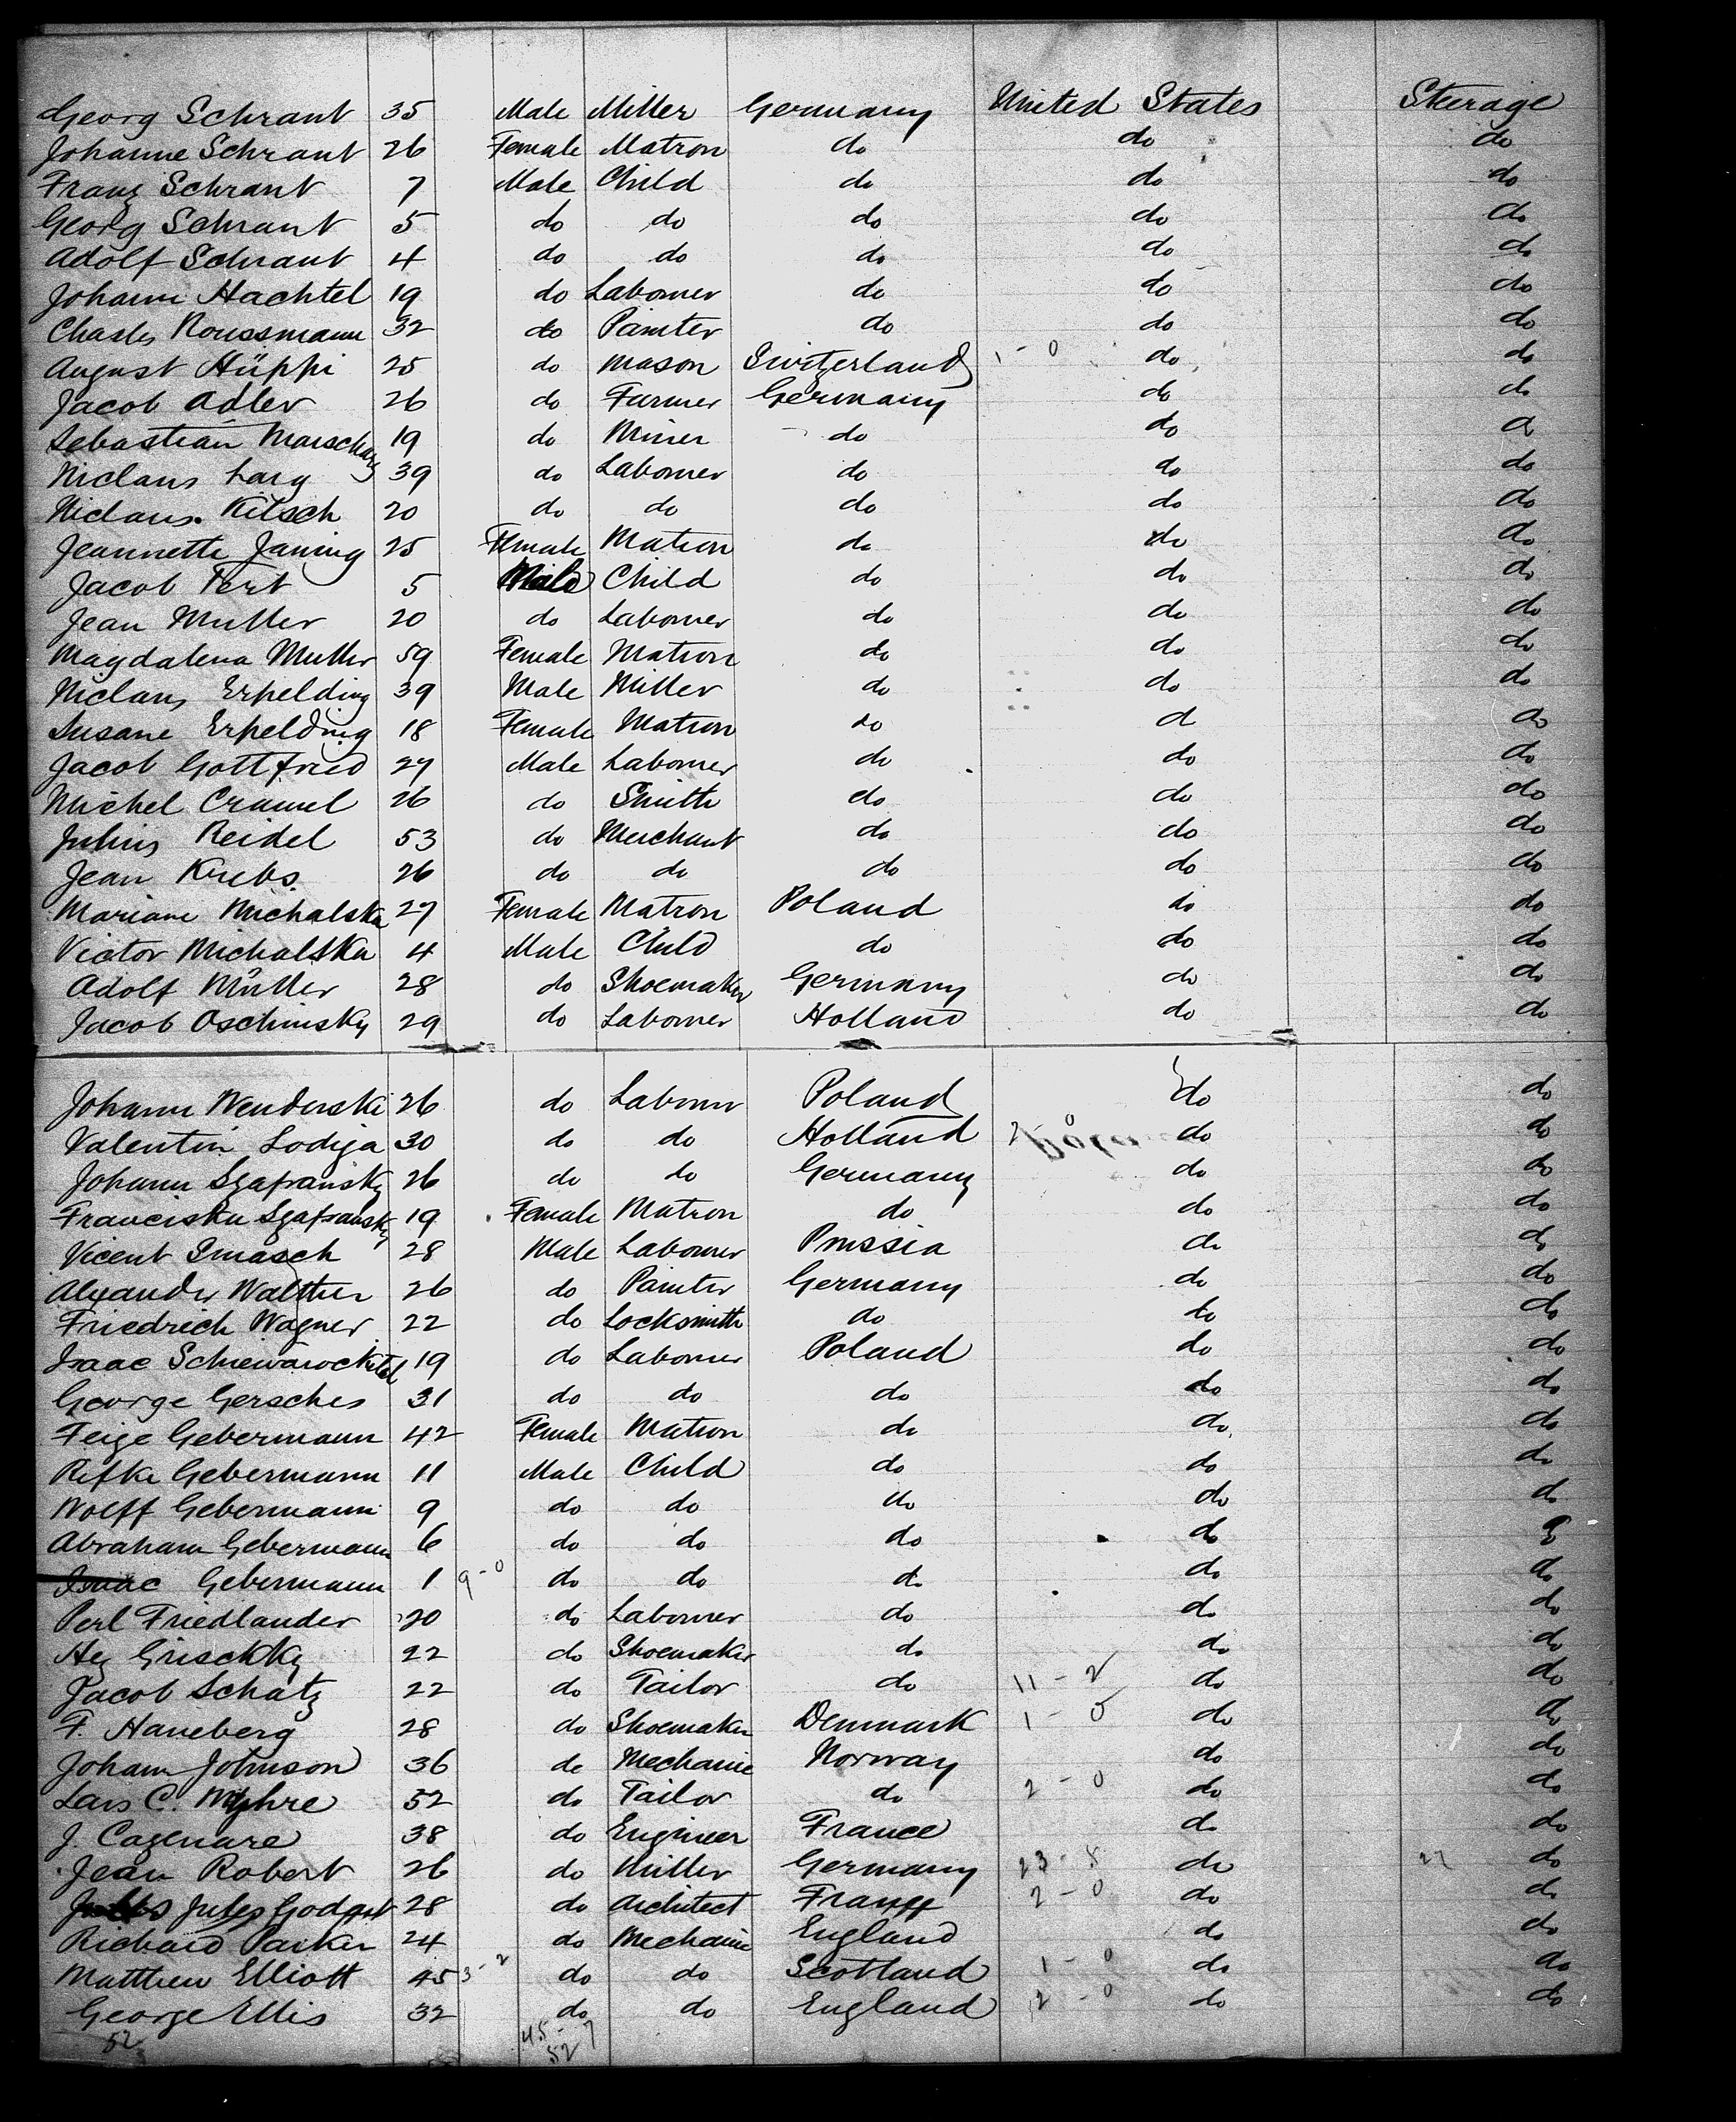 Georg Schrant 35 Male Miller Germany United States Steerage
Johanne Schrant 26 Female Matron do do do
Franz Schrant 7 Male Child do do do
Georg Schrant 5 do do do do do
Adolf Schrant 4 do do do do do
Johann Hachtel 19 do Labourer do do do
Charles Roussmann 32 do Painter do do do
August Hüppi 25 do Mason Switzerland 1 - 0 do do
Jacob Adler 26 do Farmer Germany do do
Sebastian 19 do Miner do do do
Niclaus Larg 39 do Labourer do do do
Niclaus Kitsch 20 do do do do do
Jeannette Janing 25 Female Matron do do do
Jacob Fert 5 Male Child do do do
Jean Muller 20 do Labourer do do do
Magdalena Muller 59 Female Matron do do do
Niclaus Erpelding 39 Male Miller do do do
Susane Erpelding 18 Female Matron do d do
Jacob Gottfried 29 Male Labourer do do do
Michel Cramel 26 do Smith do do do
Julius Reidel 53 do Merchant do do do
Jean Krebs 26 do do do do do
Mariane Michalska 27 Female Matron Poland do do
Victor Michalska 4 Male Child do do do
Adolf Müller 28 do Shoemaker Germany do do
Jacob Oschinsky 29 do Labourer Holland do do
Johann Wenderski 26 do Labourer Poland do do
Valentin Lodija 30 do do Holland 2 - 0 do do
Johann Szafransky 26 do do Germany do do
Franciska Szafransky 19 Female Matron do do do
Vicent Smasch 28 Male Labourer Prussia do do
Alexander Walther 26 do Painter Germany do do
Friedrich Wagner 22 do Locksmith do do do
Isaac 19 do Labourer Poland do do
George Gersches 31 do do do do do
Feige Gebermann 42 Female Matron do do do
Rifke Gebermann 11 Male Child do do do
Wolff Gebermann 9 do do do do do
Abraham Gebermann 6 do do do do do
Isaac Gebermann 1 9 - 0 do do do do do
Perl Friedlander 20 do Labourer do do do
Grischky 22 do Shoemaker do do do
Jacob Schatz 22 do Tailor do 11 - 2 do do
F. Haneberg 28 do Shoemaker Denmark 1 - 0 do do
Johann Johnson 36 do Mechanic Norway do do
Lars C. Myhre 52 do Tailor do 2 - 0 do do
J. Cazenare 38 do Engineer France do do
Jean Robert 26 do Miller Germany 23 - 8 do 27 do
Jules Godart 28 do Architect France 2 - 0 do do
Richard Parker 24 do Mechanic England do do
Matthew Elliott 45 3 - 2 do do Scotland 1 - 0 do do
George Ellis 32 do do England 2 - 0 do do
52 45 - 7
52